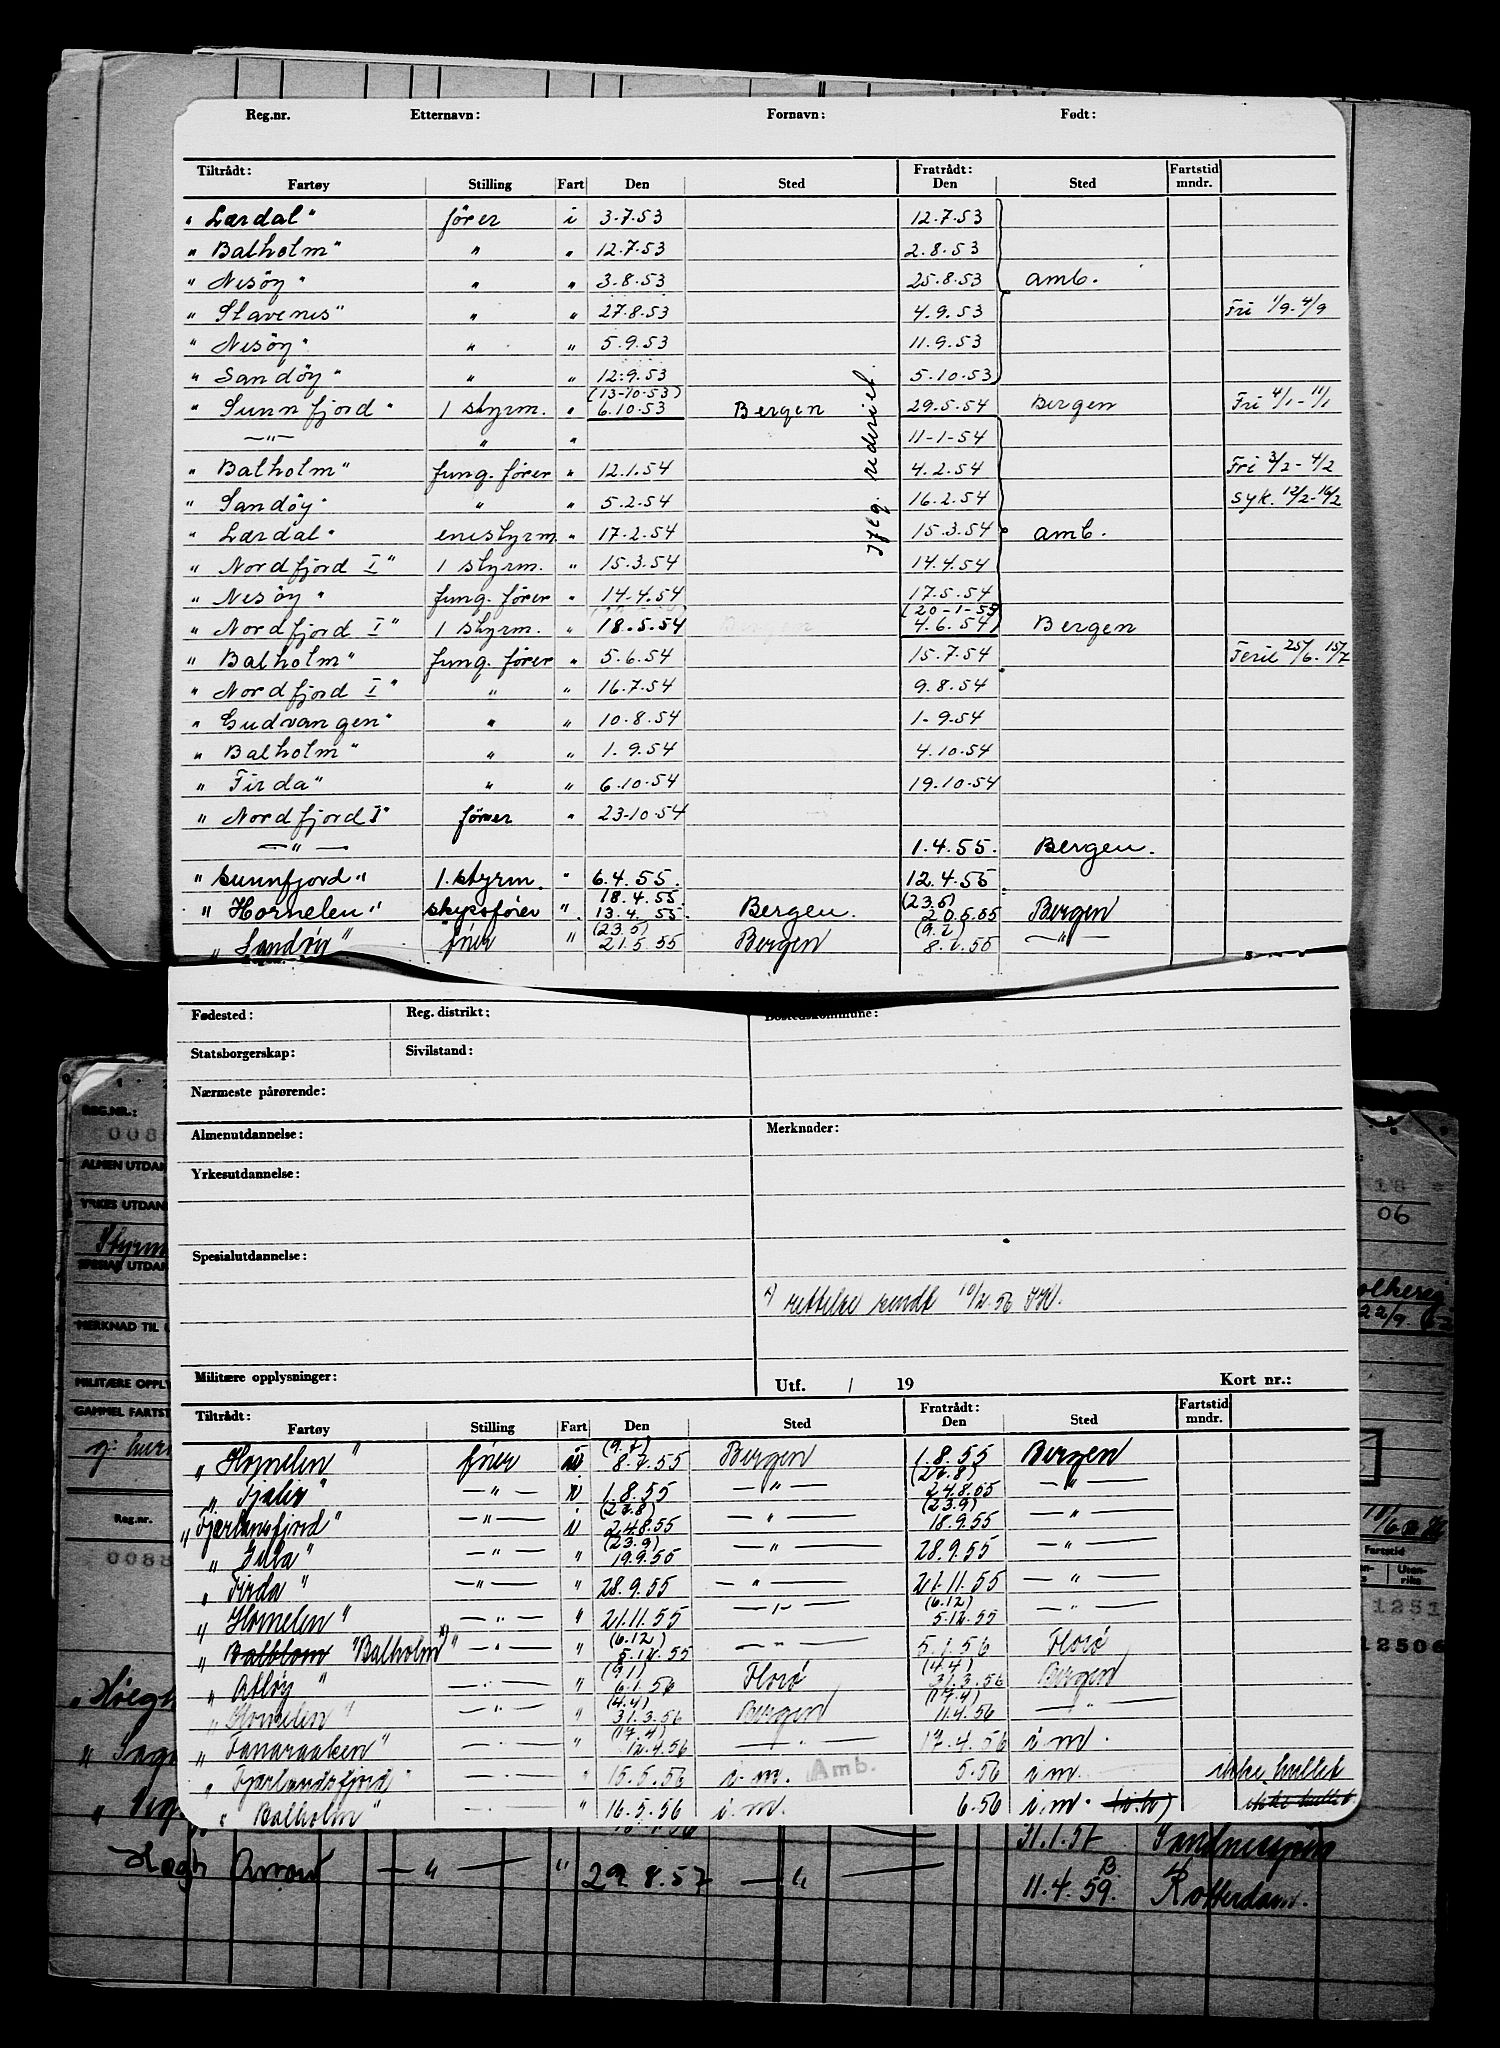 Reg.nr. Etternavn: Fornavn: Født:
Tiltrådt: Fratrådt: Fartstid
Fartøy Stilling Fart Den Sted Den Sted mndr.
" Lærdal" fører i 3-7-53 12.7.53
" Balholm" " " 12.7.53 2.8.53
" Nesøy" " " 3.8.53 25.8.53 amb.
" Stavenes" " " 27.8.53 4.9.53 Fri 1/9-4/9
" Nesøy" " " 5.9.53 11.9.53
" Sandøy" " " 12.9.53 5.10.53
(13-10-53)
" Sunnfjord" 1 styrm. " 6.10.53 Bergen 29.5.54 Bergen Fri 4/1-11/1
—"— " " 11-1-54
" Balholm" fung. fører " 12.1.54 4.2.54 Fri 3/2-4/2
" Sandøy" " " 5.2.54 16.2.54 syk. 12/2-16/2
" Lærdal" enestyrm " 17.2.54 15.3.54 amb.
" Nordfjord I" 1 styrm. " 15.3.54 14.4.54
" Nesøy" fung. fører " 14.4.54 17.5.54
(20-1-55)
" Nordfjord I" 1 styrm. " 18.5.54 4.6.54 Bergen
" Balholm" fung. fører " 5.6.54 15.7.54 Ferie 25/6-15/7
" Nordfjord I" " " 16.7.54 9.8.54
" Gudvangen" " " 10.8.54 1-9.54
" Balholm" " " 1.9.54 4.10.54
" Firda" " " 6.10.54 19.10.54
" Nordfjord I" fører " 23-10-54
—"— 1.4.55. Bergen.
" Sunnfjord" 1. styrm. " 6.4.55. 12.4.55
18.4.55 (23.5)
" Hornelen" skipsfører " 13.4.55. Bergen. 20.5.55 Bergen
(23.5) (9.7)
" Sandøy" fører " 21.5.55 Bergen 8.7.55 —"—
Iflg. rederiet.
Fødested: Reg. distrikt: Bostedskommune:
Statsborgerskap: Sivilstand:
Nærmeste pårørende:
Almenutdannelse: Merknader:
Yrkesutdannelse:
Spesialutdannelse:
x) rettelse sendt 10/2.56
Militære opplysninger: Utf. / 19 Kort nr.:
Tiltrådt: Fratrådt: Fartstid
Fartøy Stilling Fart Den Sted Den Sted mndr.
(9.7)
" Hornelen" fører 8.7.55 Bergen 1.8.55 Bergen
(27.8)
" Fjaler" —"— i 1.8.55 —"— 24.8.55 —"—
(27.8) (23.9)
" Fjærlandsfjord" —"— i 24.8.55 —"— 18.9.55 —"—
(23.9)
—"— " 19.9.55 —"— 28.9.55 —"—
" Firda" —"— " 28.9.55 —"— 21.11.55 —"—
(6.12)
" Hornelen" —"— " 21.11.55 —"— 5.12.55 —"—
(6.12)
" Balblom "Balholm" x) —"— " 5.12.55 —"— 5.1.56 Florø
(9.1) (4.4)
" Atløy" —"— " 6.1.56 Florø 31.3.56 Bergen
(4.4) (17.4)
" Hornelen" —"— " 31.3.56 Bergen 11.4.56 —"—
(17.4)
" Fanaraaken" —"— " 12.4.56 —"— 17.4.56 i.m.
" Fjærlandsfjord" —"— " 15.5.56 i.m. Amb. 5.56 i m. ikke hullet
" Balholm" —"— " 16.5.56 i.m. 6.56 i.m. ikke hullet
REG.NR.:
008
ALMEN UTDAN
YRKES UTDAN
Styrm
SPESIAL UTDAN
MERKNAD TIL
MILITÆRE OPPLY
GAMMEL FARTST
Reg.nr.
0088
18
06
22/9.
Fartstid
Uten-
riks
1251
12506
" Høegh
31.1.57
Høegh —"— " 29.8.57 —"— 11.4.59. Rotterdam.